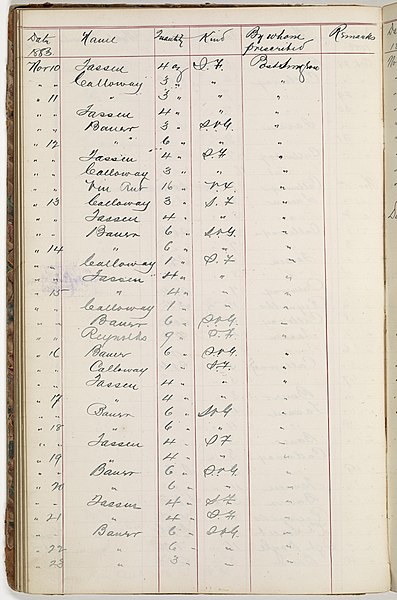 Date Name Quantity Kind By whom prescribed Remarks
1883.
Nov 10 Tassen 4 oz S. F. Post Surgeon
" " Calloway 3 " " "
" 11 " 3 " " "
" " Tassen 4 " " "
" " Bauer 3 " S.V.G. "
" 12 " 6 " " "
" " Tassen 4 " S.F. "
" " Calloway 3 " " "
" " 16 " "
" 13 Calloway 3 " S.F. "
" " Tassen 4 " " "
" " Bauer 6 " S.V.G. "
" 14 " 6 " " "
" " Calloway 1 " S.F. "
" " Tassen 4 " " "
" 15 " 4 " " "
" " Calloway 1 " " "
" " Bauer 6 " S.V.G. "
" " Reynolds 9 " S.F. "
" 16 Bauer 6 " S.V.G. "
" " Calloway 1 " S.F. "
" " Tassen 4 " " "
" 17 " 4 " " "
" " Bauer 6 " S.V.G. "
" 18 " 6 " " "
" " Tassen 4 " S.F. "
" 19 " 4 " " "
" " Bauer 6 " S.V.G. "
" 20 " 6 " " "
" " Tassen 4 " S.F. "
" 21 " 4 " S.F. "
" " Bauer 6 " S.V.G. "
" 22 " 6 " " "
" 23 " 3 " " "